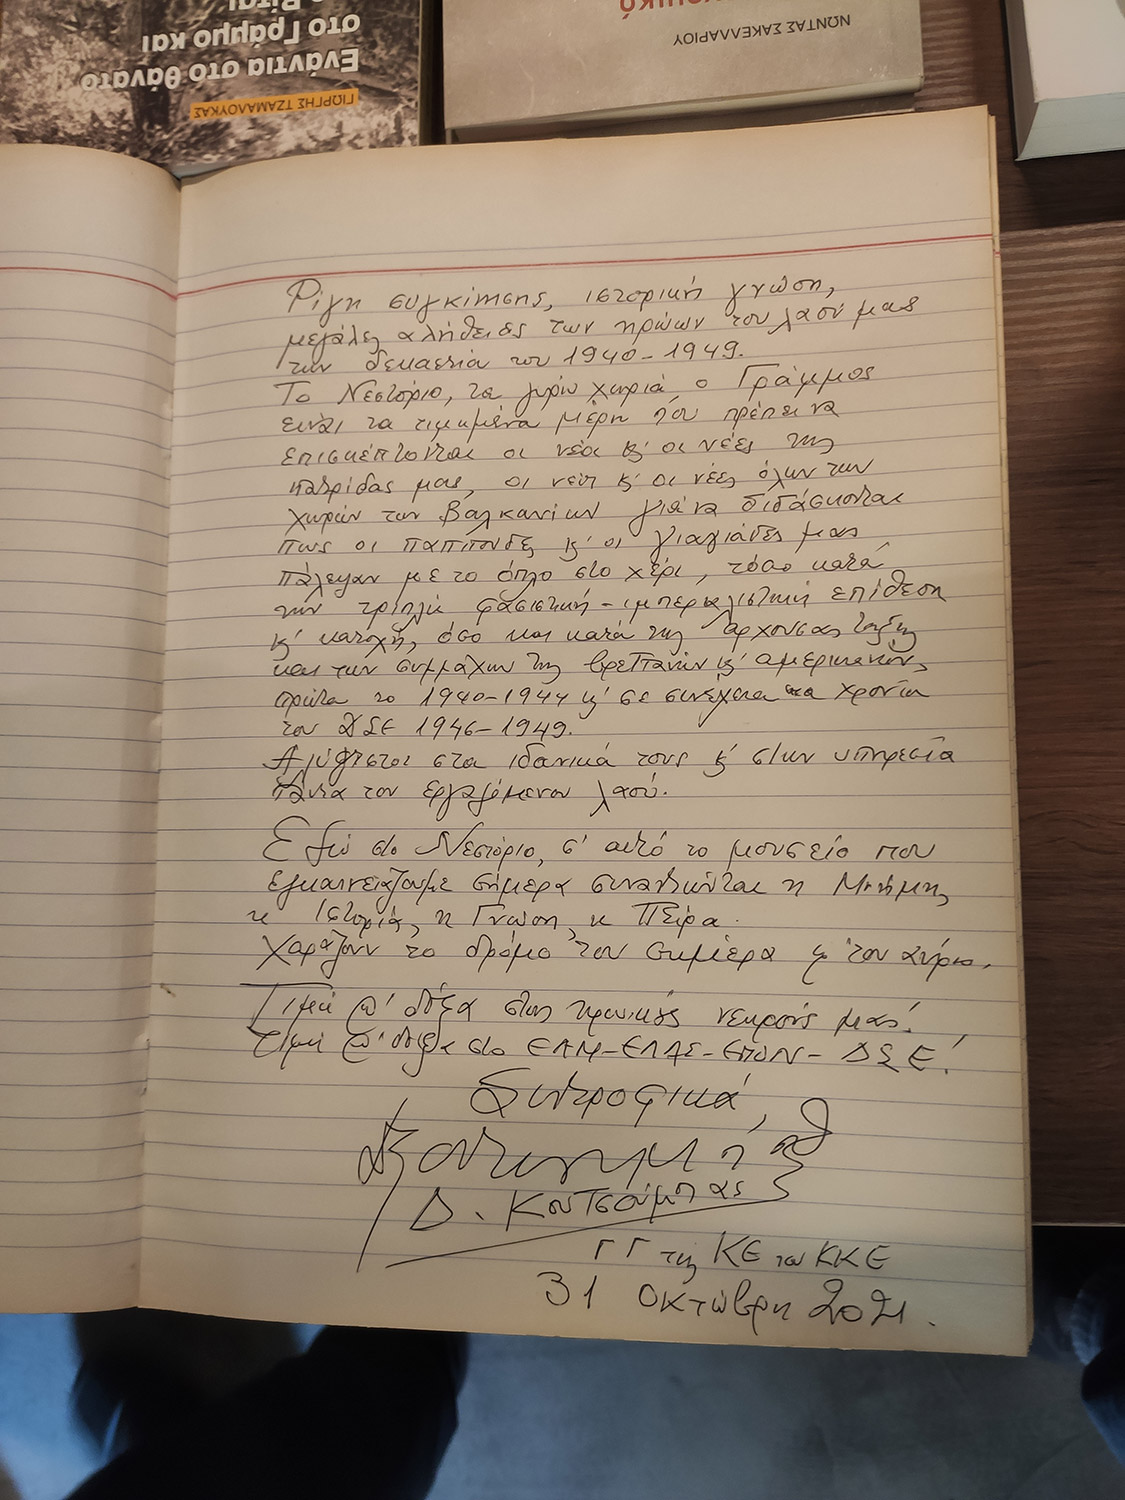 ΓΙΩΡΓΗΣ ΤΖΑΜΑΛΟΥΚΑΣ
Ενάντια στο θάνατο
στο Γράμμο και
Βίτσι
ΝΩΝΤΑΣ ΣΑΚΕΛΛΑΡΙΟΥ
Ρίγη συγκίνησης, ιστορική γνώση,
μεγάλες αλήθειες των ηρώων του λαού μας
την δεκαετία του 1940-1949.
Το Νεστόριο, τα γύρω χωριά, ο Γράμμος
είναι τα τιμημένα μέρη που πρέπει να
επισκέπτονται οι νέοι κ' οι νέες της
πατρίδας μας, οι νέοι κ' οι νέες όλων των
χωρών των Βαλκανίων για να διδάσκονται
πως οι παππούδες κ' οι γιαγιάδες μας
πάλεψαν με το όπλο στο χέρι, τόσο κατά
την τριπλή φασιστική-ιμπεριαλιστική επίθεση
κ' κατοχή, όσο και κατά της άρχουσας τάξης
και των συμμάχων της βρεττανών κ' αμερικανών,
πρώτα το 1940-1944 κ' σε συνέχεια τα χρόνια
του ΔΣΕ 1946-1949.
Αλύγιστοι στα ιδανικά τους κ' στην υπηρεσία
πάντα του εργαζόμενου λαού.
Εδώ στο Νεστόριο, σ' αυτό το μουσείο που
εγκαινιάζουμε σήμερα συναντιώνται η Μνήμη,
η Ιστορία, η Γνώση, η Πείρα.
Χαράζουν το δρόμο του σήμερα κ' του αύριο.
Τιμή κ' δόξα στους ηρωικούς νεκρούς μας!
Τιμή κ' δόξα στο ΕΑΜ-ΕΛΑΣ-ΕΠΟΝ-ΔΣΕ!
Συντροφικά,
Δ. Κουτσούμπας
ΓΓ της ΚΕ του ΚΚΕ
31 Οκτώβρη 2021.